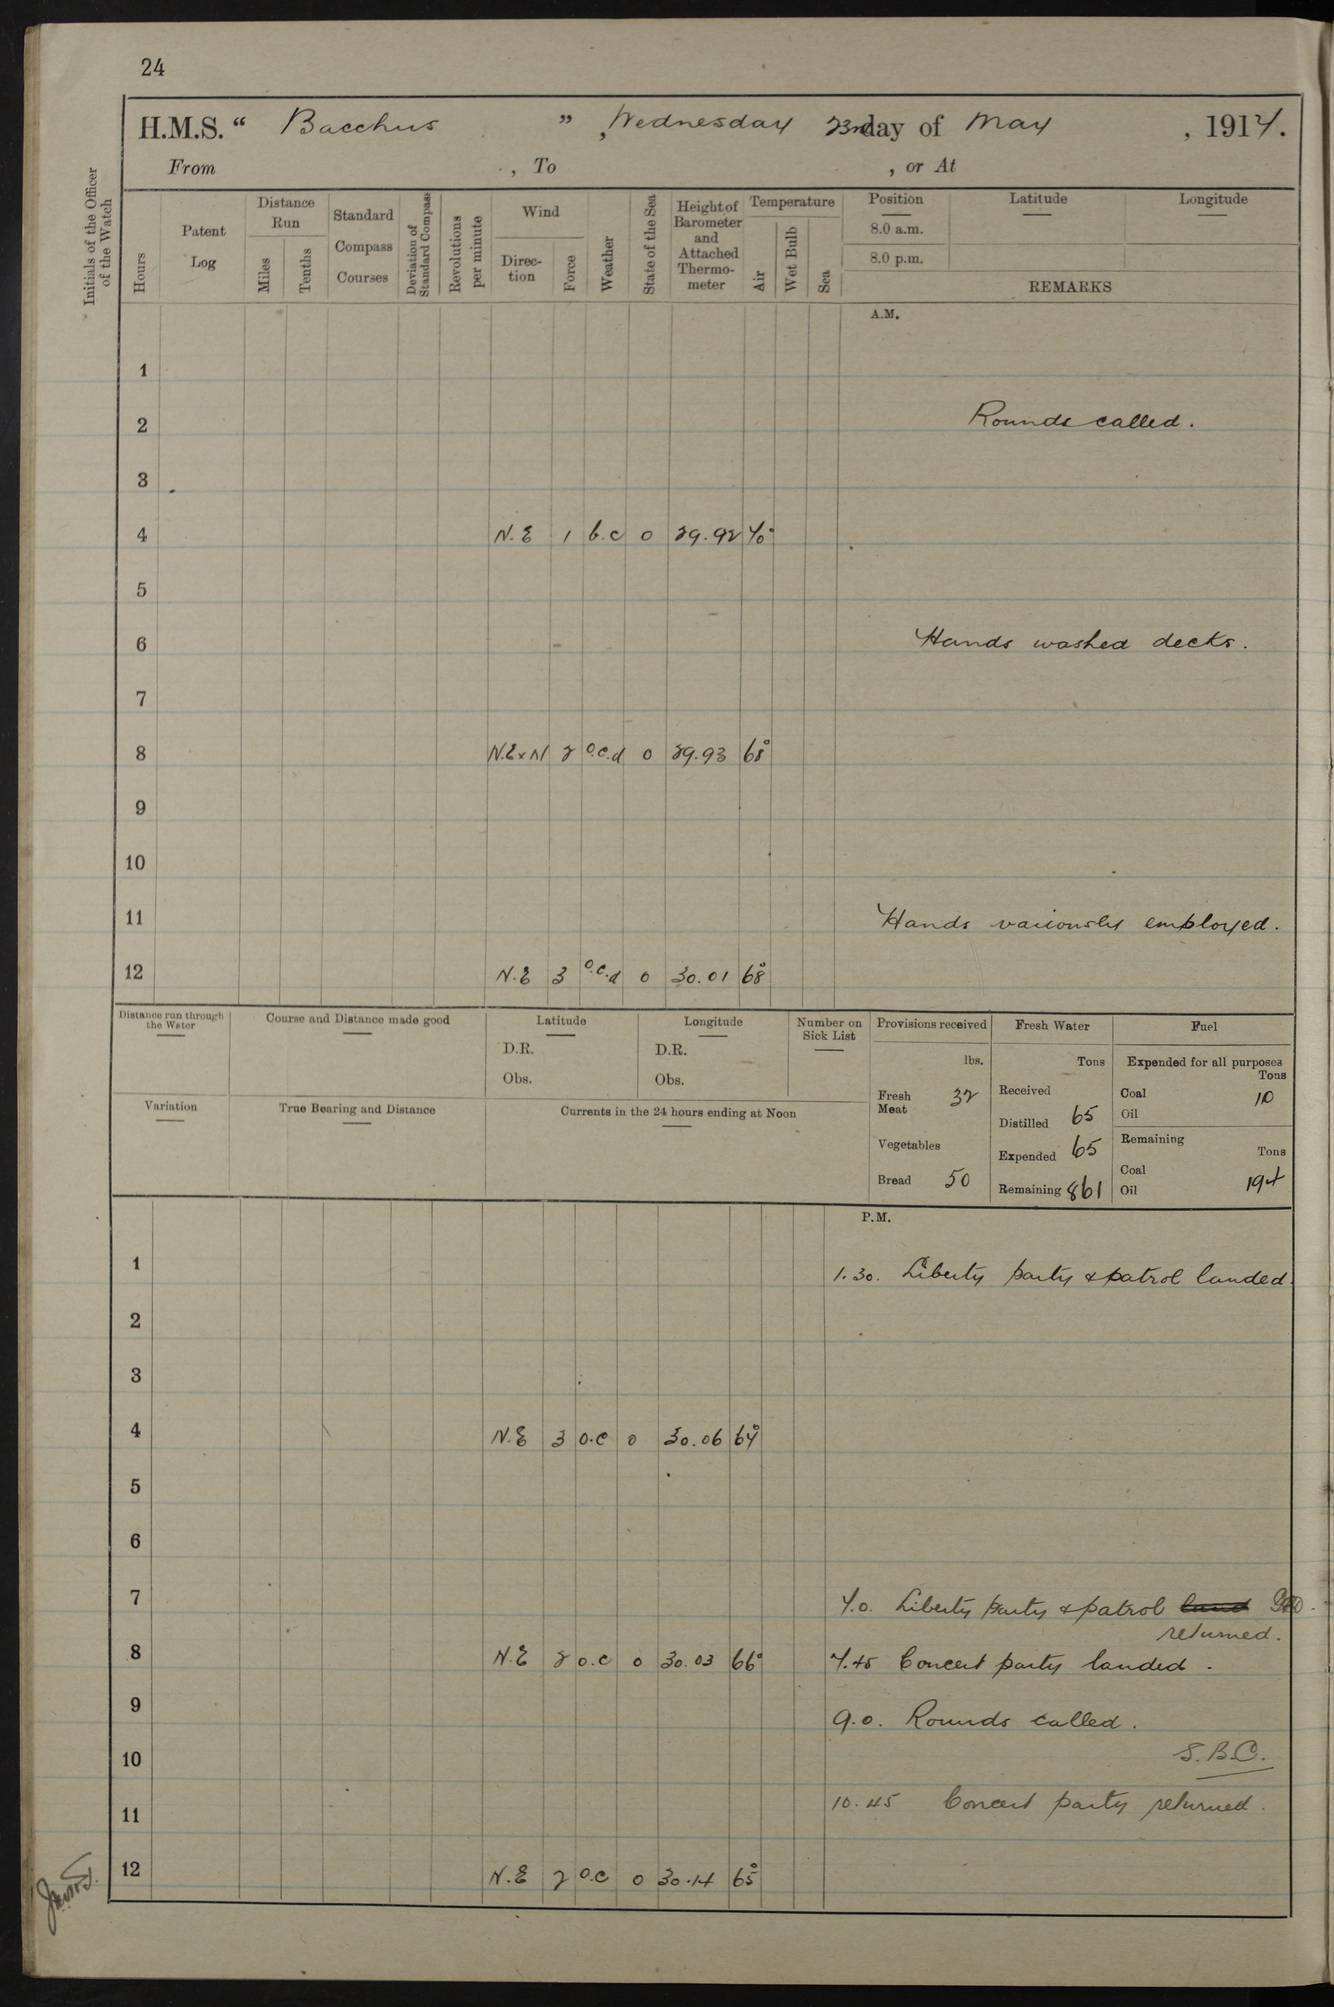 24
H.M.S. “ Bacchus ” , Wednesday 23rd day of May , 1917.
From , To , or At
Initials of the Officer of the Watch
Hours
Patent Log
Distance Run
Miles
Tenths
Standard Compass Courses
Deviation of Standard Compass
Revolutions per minute
Wind
Direc-tion
Force
Weather
State of the Sea
Height of Barometer and Attached Thermo-meter
Temperature
Air
Wet Bulb
Sea
Position
8.0 a.m.
8.0 p.m.
Latitude
Longitude
REMARKS
A.M.
1
2 Rounds called.
3
4 N.E 1 b.c 0 29.92 70°
5
6 Hands washed decks.
7
8 N.E x N 2 o.c.d 0 29.93 68°
9
10
11 Hands variously employed.
12 N.E 3 o.c.d 0 30.01 68°
Distance run through the Water
Course and Distance made good
Latitude
D.R.
Obs.
Longitude
D.R.
Obs.
Number on Sick List
Variation
True Bearing and Distance
Currents in the 24 hours ending at Noon
Provisions received
lbs.
Fresh Meat 32
Vegetables
Bread 50
Fresh Water
Tons
Received
Distilled 65
Expended 65
Remaining 861
Fuel
Expended for all purposes
Tons
Coal 10
Oil
Remaining
Tons
Coal
Oil 194
P.M.
1 1.30. Liberty party & patrol landed.
2
3
4 N.E 3 o.c 0 30.06 67°
5
6
7 7.0. Liberty party & patrol land
returned.
8 N.E 2 o.c 0 30.03 66° 7.45 Concert party landed.
9 9.0. Rounds called.
S.B.C.
10
11 10.45 Concert party returned.
12 N.E 2 o.c 0 30.14 65°